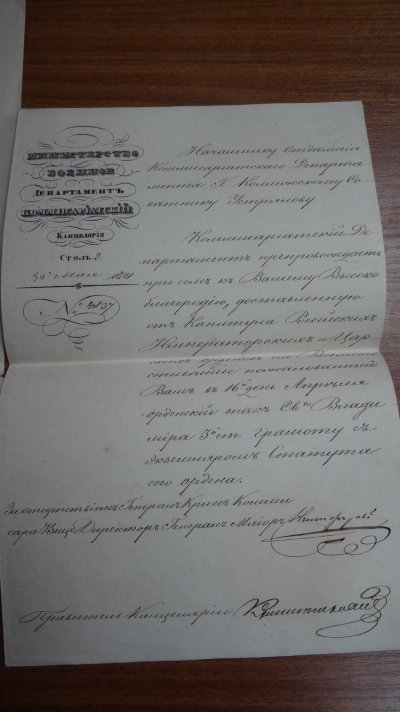 МИНИСТЕРСТВО
ВОЕННОЕ
ДЕПАРТАМЕНТЪ
КОММИСАРІАТСКІЙ
КАНЦЕЛЯРІЯ
СТОЛЪ 2
30 Мая 1841
№ 4837
Начальнику Отдѣленія
Коммисаріатскаго Департа
мента Г. Коллежскому Со
вѣтнику Устрялову.
Коммисаріатскій Де
партаментъ препровождаетъ
при семъ къ Вашему Высоко
благородію, доставленную
отъ Капитула Россійскихъ
Императорскихъ и Цар
скихъ орденовъ на Всемило
стивѣйше пожалованный
Вамъ въ 16й день Апрѣля
орденскій знакъ Свго Влади
міра 3й ст грамоту съ
экземпляромъ Статута
сего ордена.
За отсутствіемъ Генералъ Кригсъ Комми
сара Вице Директоръ Генералъ Маіоръ
Правитель Канцеляріи